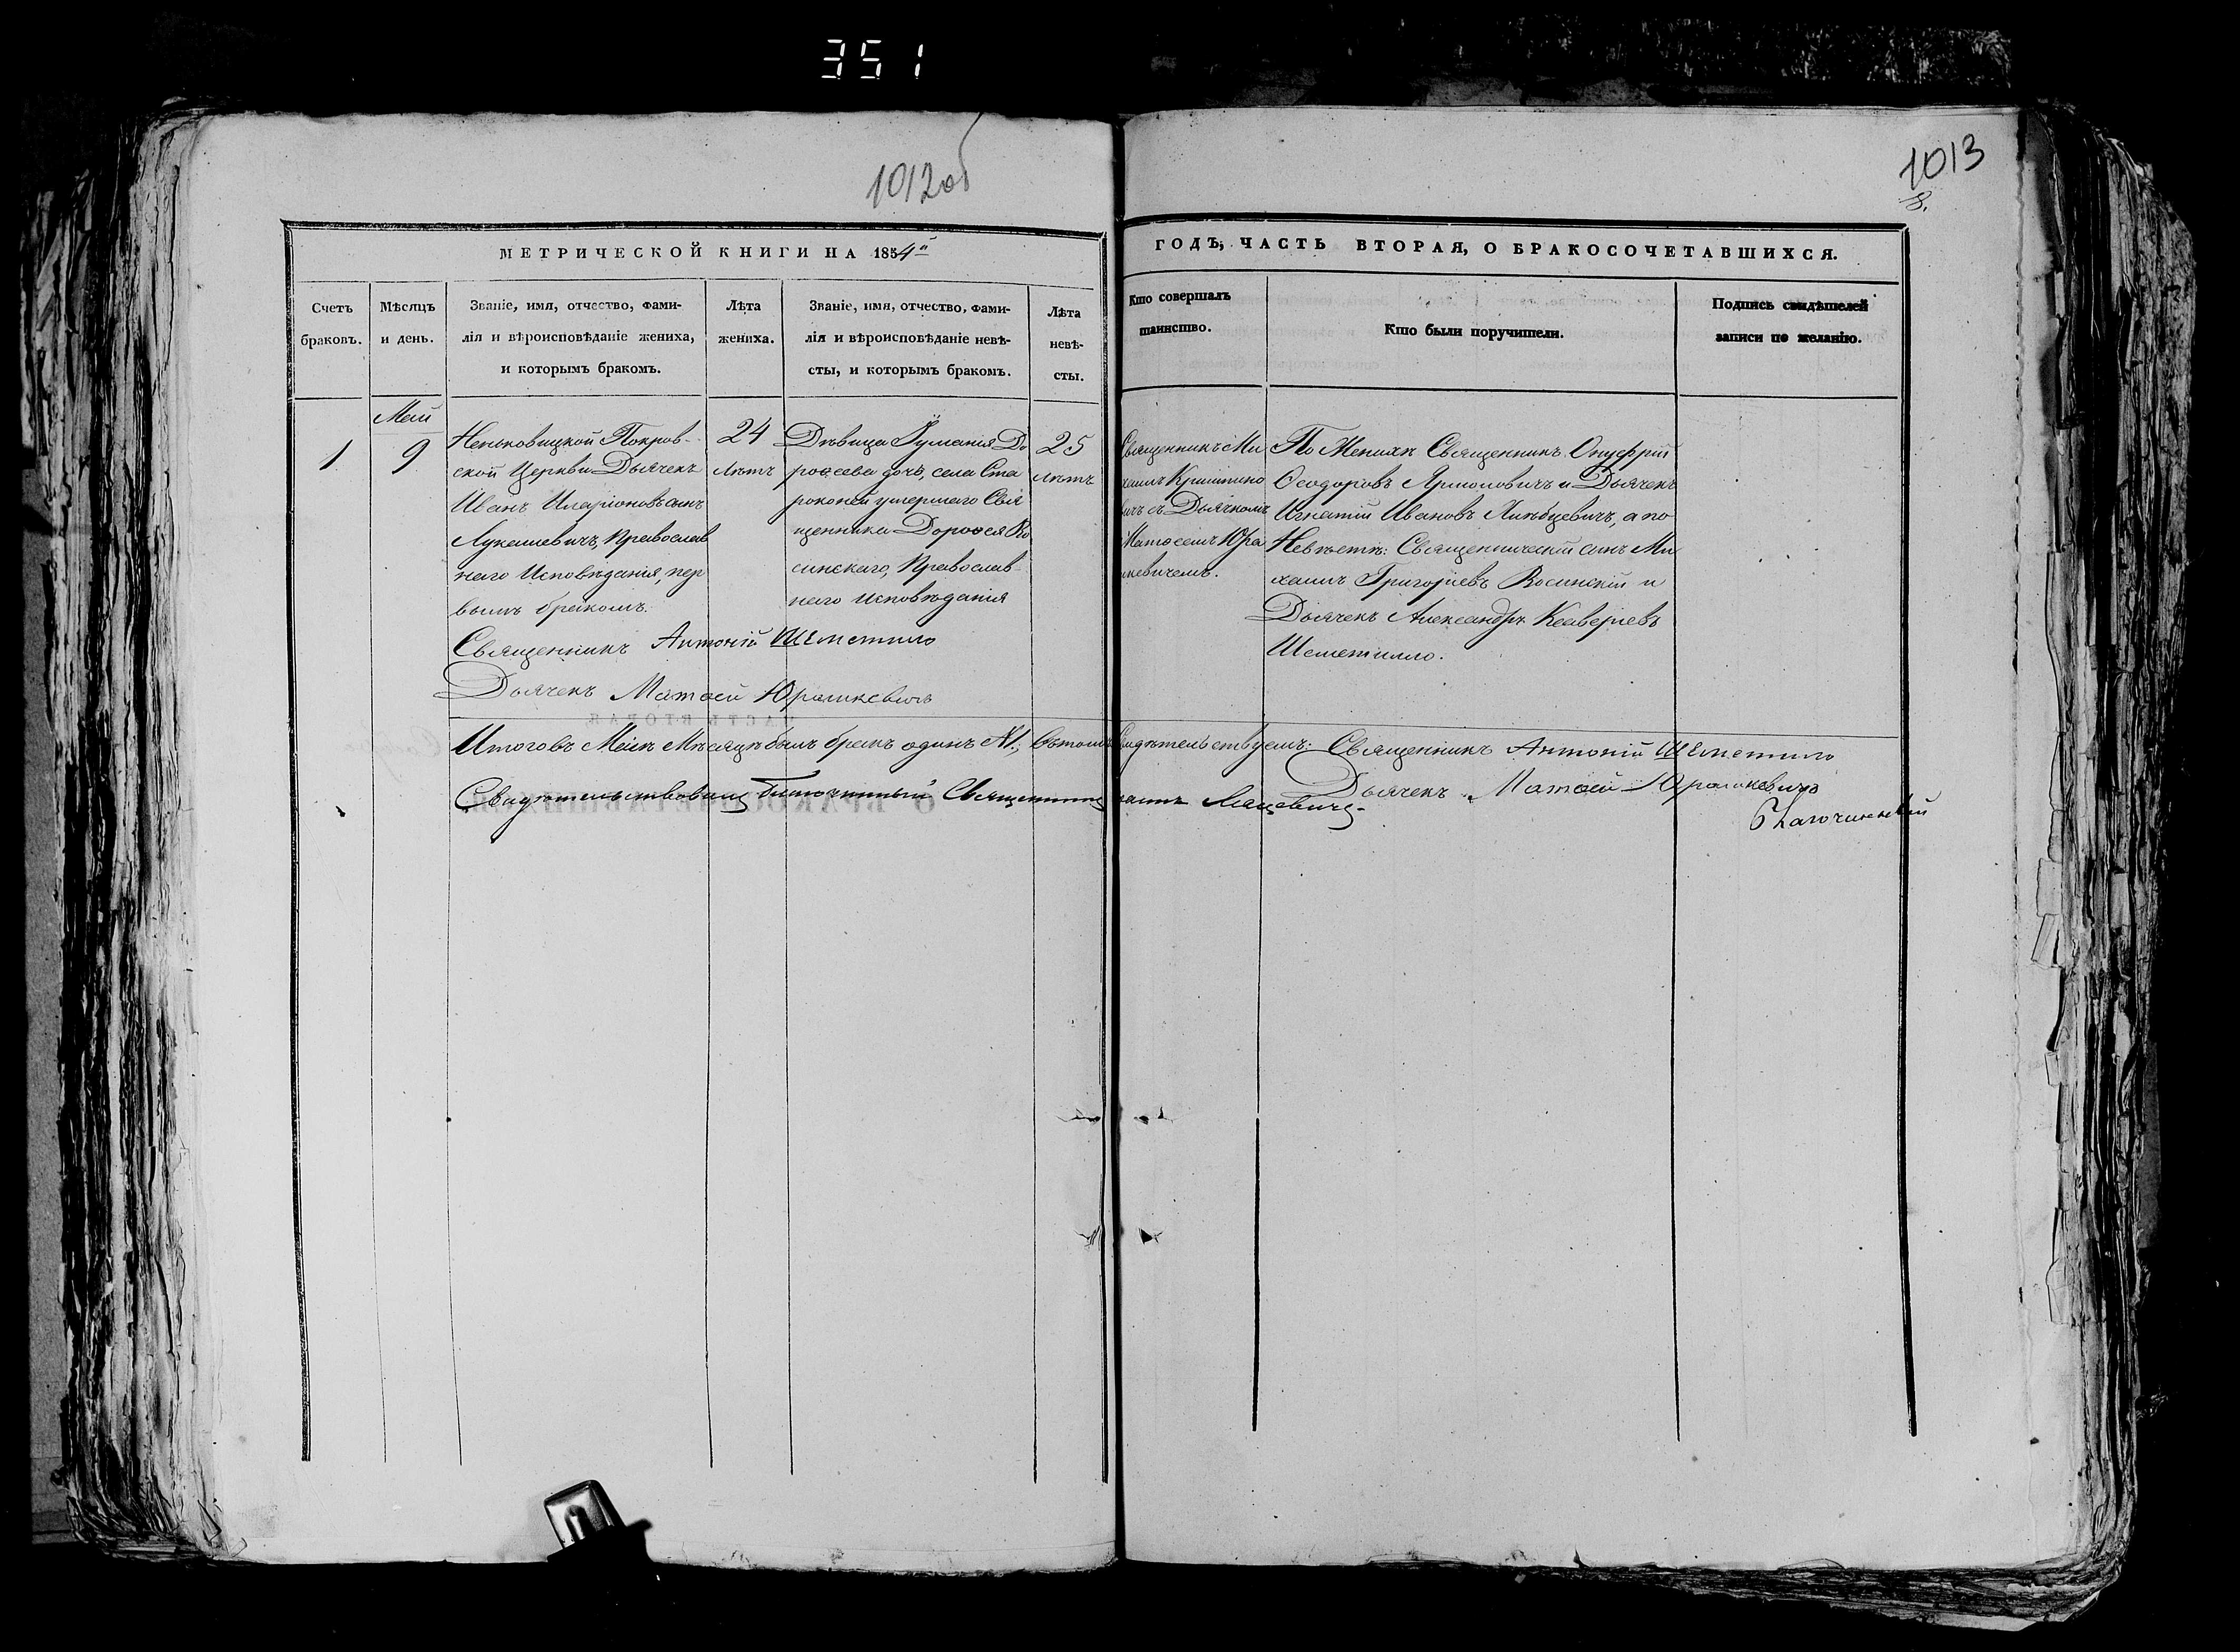 351
1012об
1013
8.
МЕТРИЧЕСКОЙ КНИГИ НА 1854й
ГОДЪ, ЧАСТЬ ВТОРАЯ, О БРАКОСОЧЕТАВШИХСЯ.
Счетъ
браковъ.
Мѣсяцъ
и день.
Званіе, имя, отчество, фами-
лія и вѣроисповѣданіе жениха,
и которымъ бракомъ.
Лѣта
жениха.
Званіе, имя, отчество, фами-
лія и вѣроисповѣданіе невѣ-
сты, и которымъ бракомъ.
Лѣта
невѣ-
сты.
Кто совершалъ
таинство.
Кто были поручители.
Подпись свидѣтелей
записи по желанію.
1
Май
9
Неньковицкой Покров-
ской Церкви Дьячекъ
Иванъ Иларіоновъ сынъ
Лукашевичъ, Православ
наго Исповѣданія, пер
вымъ бракомъ.
24
лѣтъ
Дѣвица Іуліанія До
роѳеева дочь, села Ста
роконей умершаго Свя
щенника Дороѳея Ро
синскаго, Православ-
наго исповѣданія
25
лѣтъ
Священникъ Ми
хаилъ
съ Дьячкомъ
Матѳеемъ Юра
шкевичемъ.
По Женихѣ Священникъ Онуфрій
Ѳеодоровъ Ярмоловичъ и Дьячекъ
Игнатій Ивановъ а по
Невѣстѣ: Священническій сынъ Ми
хаилъ Григоріевъ Росинскій и
Дьячекъ Александръ Ксаверіевъ
Шеметилло.
Священникъ Антоній Шеметило
Дьячекъ Матѳей Юрашкевичъ
Итого въ Маѣ Мѣсяцѣ былъ бракъ одинъ №1, въ томъ свидѣтельствуемъ: Священникъ Антоній Шеметило
Дьячекъ Матѳей Юрашкевичъ
Свидѣтельствовалъ Благочинный Священникъ
Благочинный